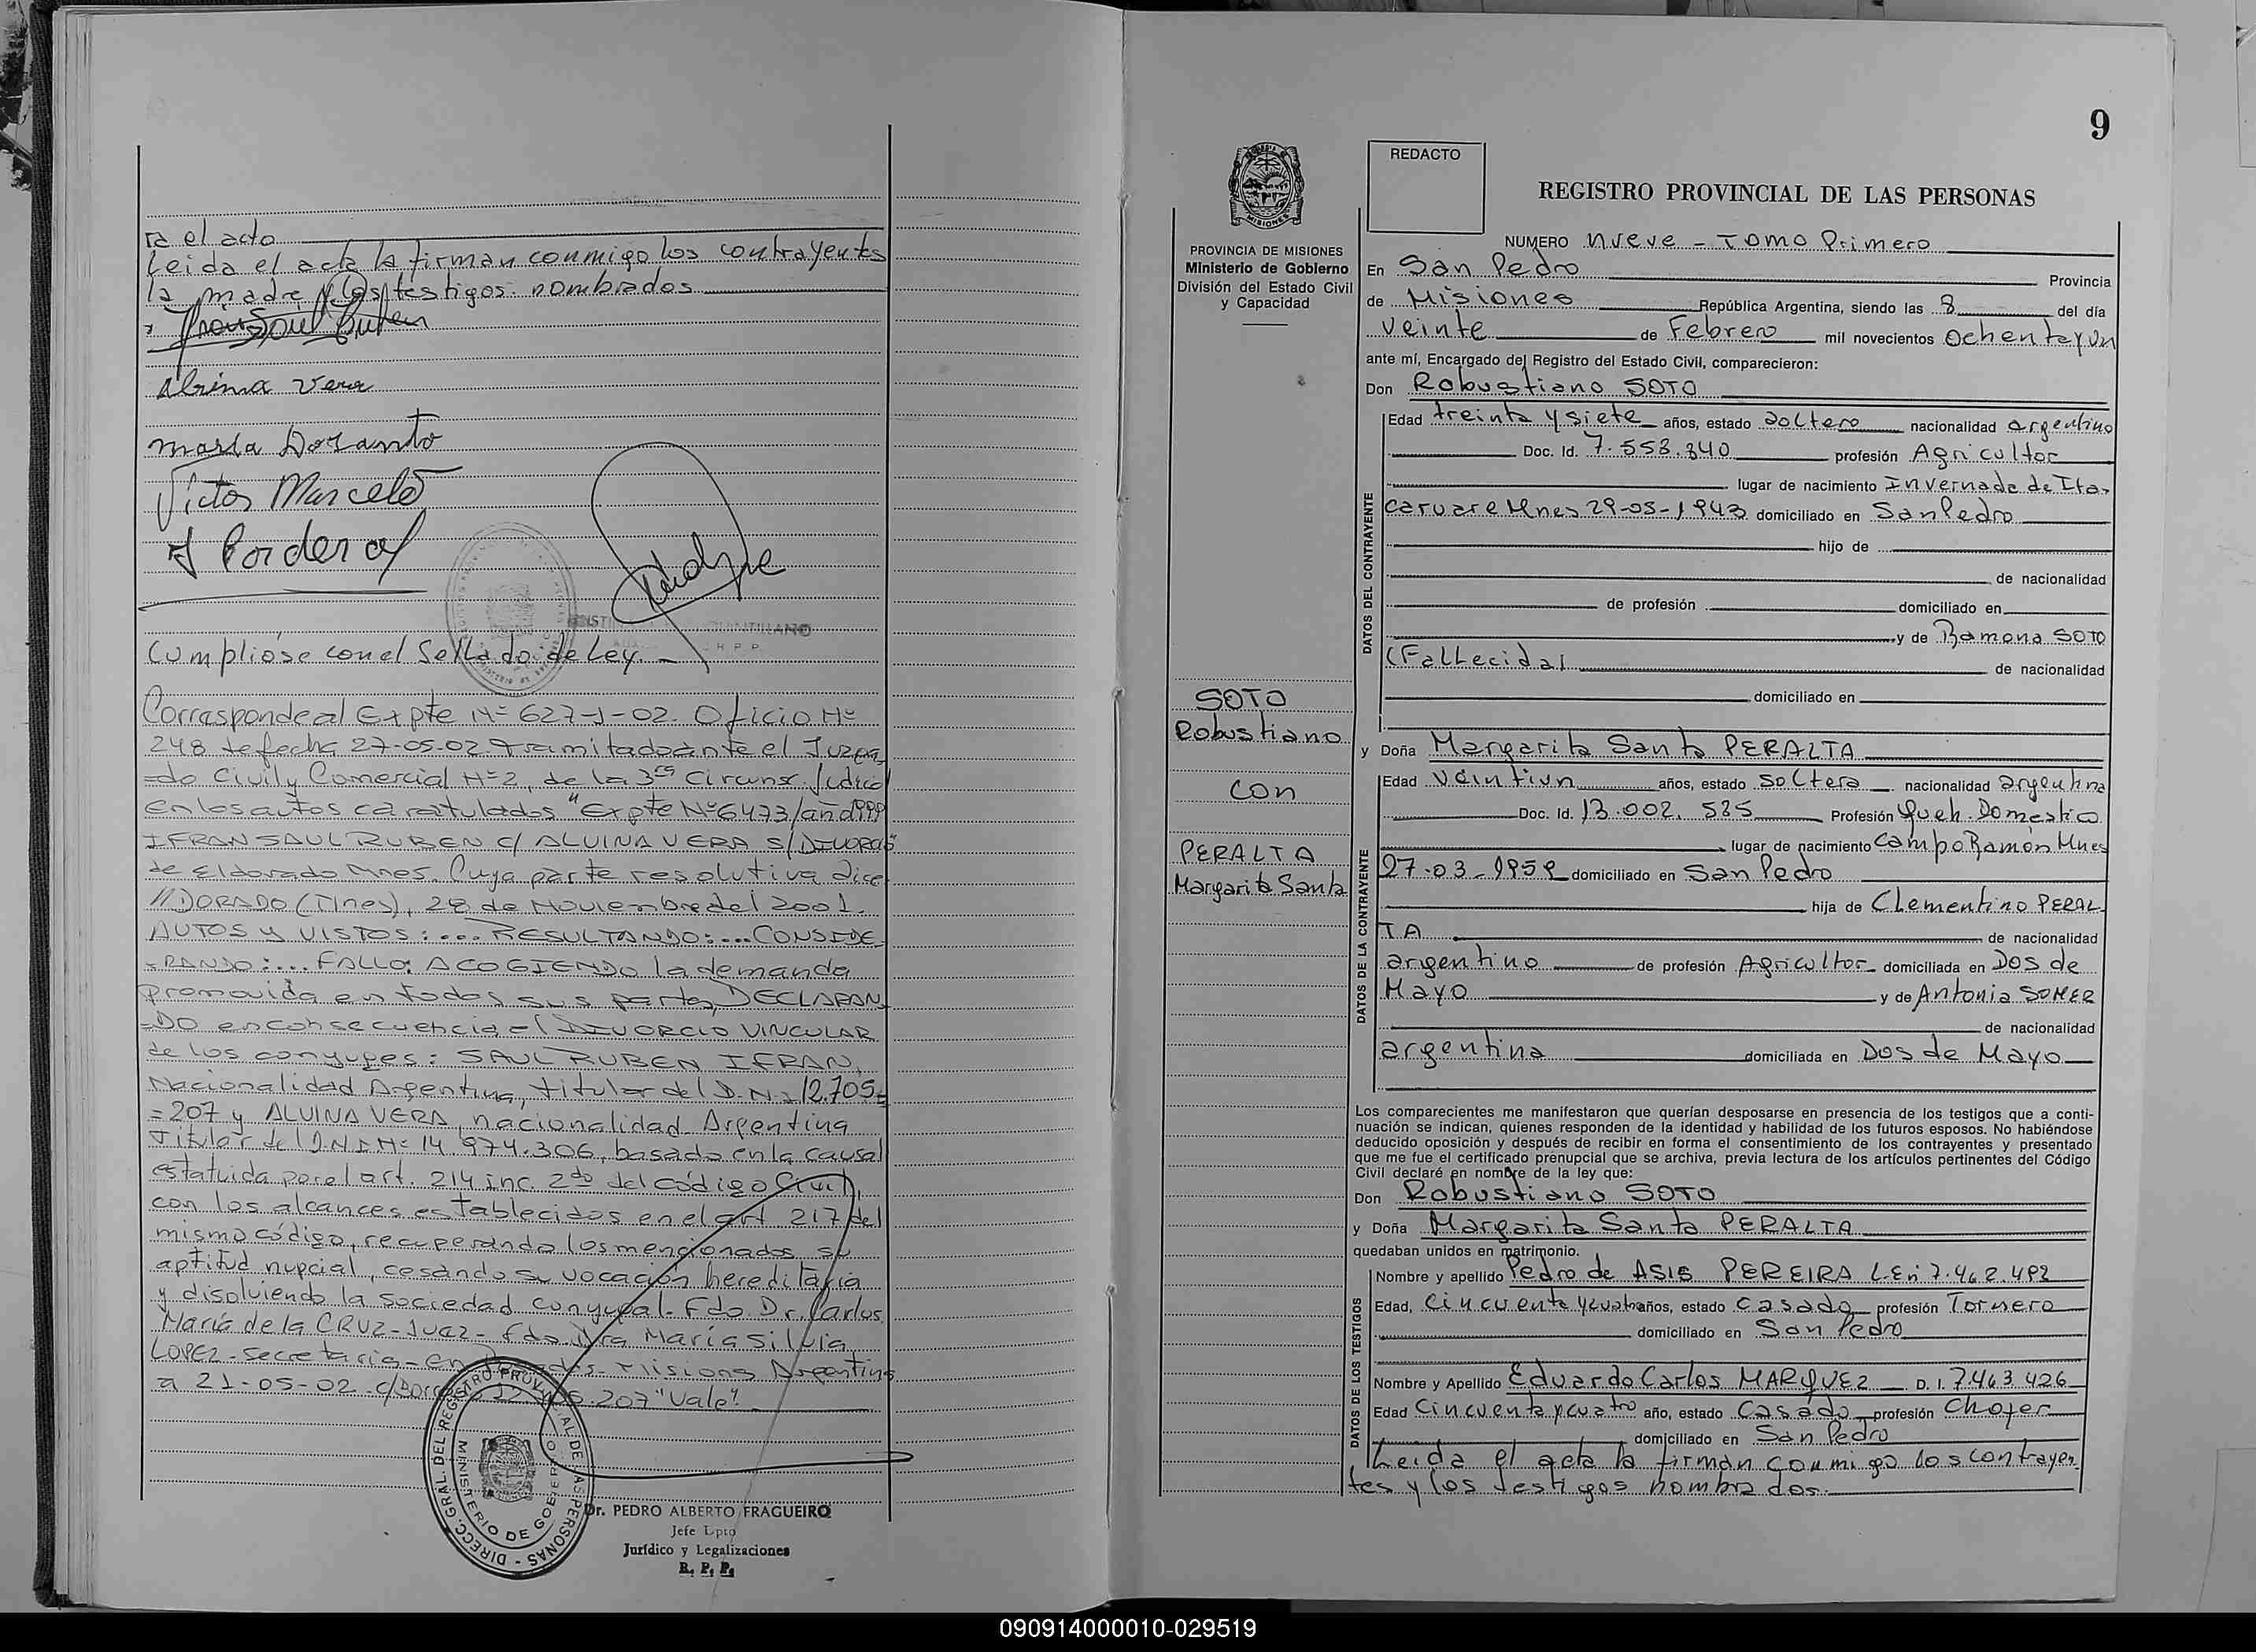 ra el acto
Leida el acta la firman conmigo los contrayentes
la madre y los testigos nombrados
Albina Vera
Maria Doranto
Victor Marcelo
Cumpliose con el Sellado de Ley. -
Corresponde al Expte Nº 627-J-02. Oficio Nº
248 de fecha 27-05-02 Tramitado ante el Juzga
=do Civil y Comercial Nº 2, de la 3ra Circunsc. Judicial
en los autos caratulados "Expte Nº 6473/año 1999
IFRAN SAUL RUBEN C/ ALVINA VERA S/ DIVORCIO"
de Eldorado Mnes. Cuya parte resolutiva dice:
//DORADO (Mnes), 28 de Noviembre del 2001.
AUTOS Y VISTOS: ... RESULTANDO: ... CONSIDE
=RANDO: ... FALLO: ACOGIENDO la demanda
promovida en todas sus partes, DECLARAN
=DO en consecuencia el DIVORCIO VINCULAR
de los conyuges: SAUL RUBEN IFRAN,
Nacionalidad Argentina, titular del D.N.I. 12.705=
=207 y ALVINA VERA, nacionalidad Argentina
Titular del D.N.I Nº 14.974.306, basado en la causal
estatuida por el art. 214 inc. 2do del código Civil,
con los alcances establecidos en el art 217 del
mismo código, recuperando los mencionados su
aptitud nupcial, cesando su vocación hereditaria
y disolviendo la sociedad conyugal- Fdo. Dr. Carlos
María de la CRUZ-Juez- fdo. Dra María Silvia
LOPEZ-secretaria-en Posadas-Misiones Argentina
a 21-05-02. 207 "Vale".
DIRECC. GRAL. DEL REGISTRO PROVINCIAL DE LAS PERSONAS -
MINISTERIO DE GOBIERNO
Dr. PEDRO ALBERTO FRAGUEIRO
Jefe Dpto
Jurídico y Legalizaciones
R. P. P.
9
REDACTO
REGISTRO PROVINCIAL DE LAS PERSONAS
MISIONES
PROVINCIA DE MISIONES
Ministerio de Gobierno
División del Estado Civil
y Capacidad
SOTO
Robustiano
con
PERALTA
Margarita Santa
NUMERO nueve - Tomo Primero
En San Pedro Provincia
de Misiones República Argentina, siendo las 8 del día
veinte de Febrero mil novecientos ochenta y un
ante mí, Encargado del Registro del Estado Civil, comparecieron:
Don Robustiano SOTO
DATOS DEL CONTRAYENTE
Edad treinta y siete años, estado soltero nacionalidad argentino
Doc. Id. 7.553.340 profesión Agricultor
lugar de nacimiento Invernada de Ita-
caruare Mnes 29-05-1943 domiciliado en San Pedro
hijo de
de nacionalidad
de profesión domiciliado en
y de Ramona SOTO
(Fallecida) de nacionalidad
domiciliado en
y Doña Margarita Santa PERALTA
DATOS DE LA CONTRAYENTE
Edad veintiun años, estado soltera nacionalidad argentina
Doc. Id. 13.002.585 Profesión Queh. Domestico
lugar de nacimiento Campo Ramón Mnes
27-03-1959 domiciliado en San Pedro
hija de Clementino PERAL
TA de nacionalidad
argentino de profesión Agricultor domiciliada en Dos de
Mayo y de Antonia SOMER
de nacionalidad
argentina domiciliada en Dos de Mayo
Los comparecientes me manifestaron que querían desposarse en presencia de los testigos que a conti-
nuación se indican, quienes responden de la identidad y habilidad de los futuros esposos. No habiéndose
deducido oposición y después de recibir en forma el consentimiento de los contrayentes y presentado
que me fue el certificado prenupcial que se archiva, previa lectura de los artículos pertinentes del Código
Civil declaré en nombre de la ley que:
Don Robustiano SOTO
y Doña Margarita Santa PERALTA
quedaban unidos en matrimonio.
DATOS DE LOS TESTIGOS
Nombre y apellido Pedro de ASIS PEREIRA L.E nº 7.462.492
Edad, cincuenta y cuatro años, estado casado profesión Tornero
domiciliado en San Pedro
Nombre y Apellido Eduardo Carlos MARQUEZ D. I. 7.463.426
Edad cincuenta y cuatro año, estado casado profesión Chofer
domiciliado en San Pedro
Leida el acta la firman conmigo los contrayen-
tes y los testigos nombrados.
090914000010-029519